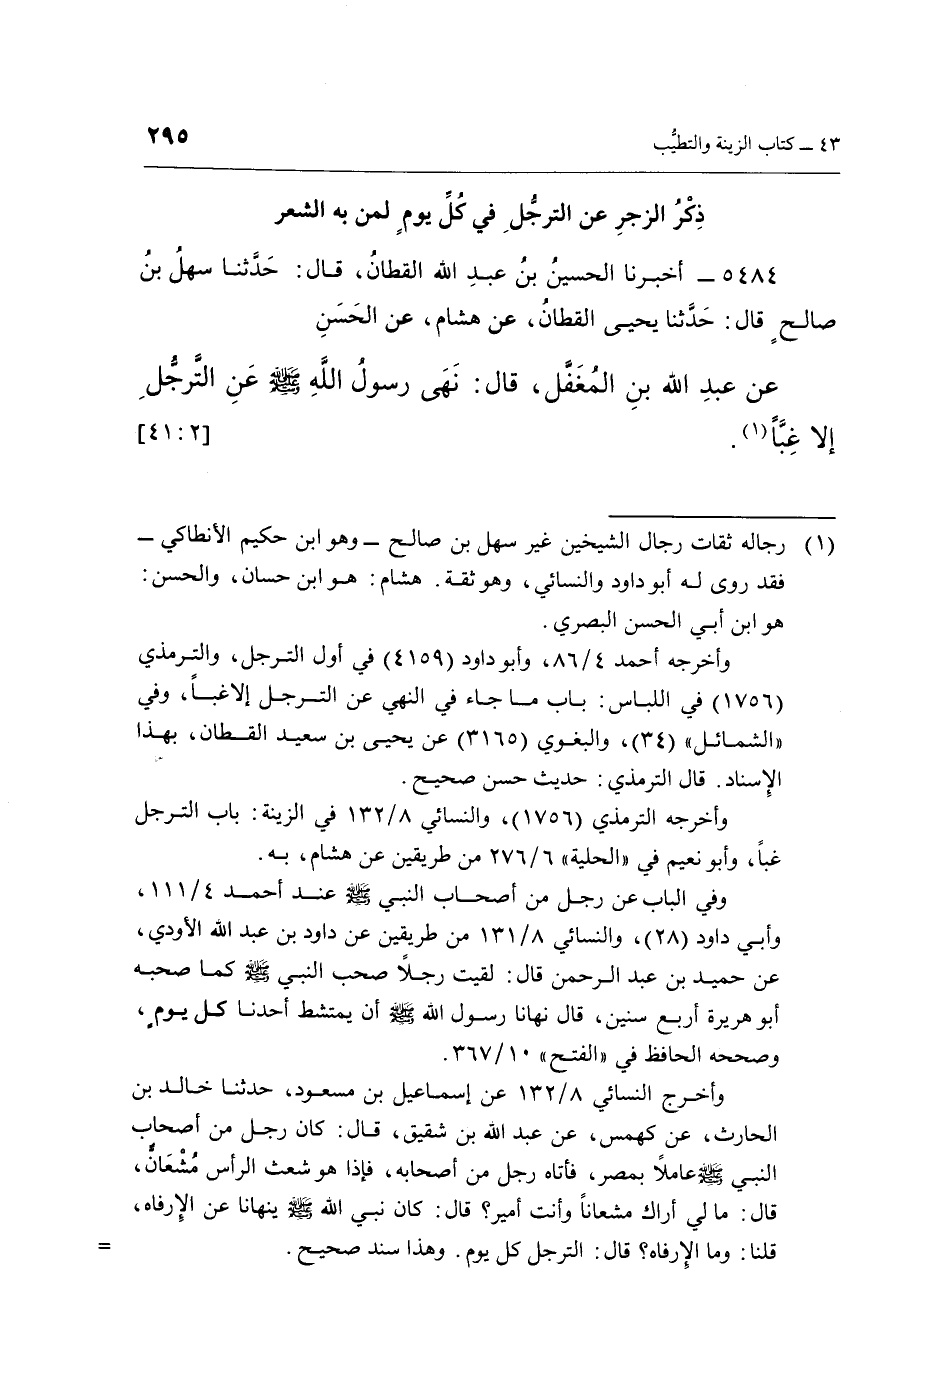 ٤٣ ـ كتاب الزينة والتطيُّب
٢٩٥
ذِكْرُ الزجرِ عن الترجُّلِ في كُلِّ يومٍ لمن به الشعر
٥٤٨٤ ـ أخبرنا الحسينُ بنُ عبدِ الله القطانُ، قال: حَدَّثنا سهلُ بنُ
صالحٍ قال: حَدَّثنا يحيى القطانُ، عن هشام، عن الحَسَنِ
عن عبدِ الله بنِ المُغَفَّلِ، قال: نَهَى رسولُ اللَّهِ ﷺ عَنِ التَّرجُّلِ
إلا غِبَّاً(١). [٤١:٢]
(١) رجاله ثقات رجال الشيخين غير سهل بن صالح ـ وهو ابن حكيم الأنطاكي ـ
فقد روى له أبو داود والنسائي، وهو ثقة. هشام: هو ابن حسان، والحسن:
هو ابن أبي الحسن البصري.
وأخرجه أحمد ٨٦/٤، وأبو داود (٤١٥٩) في أول الترجل، والترمذي
(١٧٥٦) في اللباس: باب ما جاء في النهي عن الترجل إلا غباً، وفي
«الشمائل» (٣٤)، والبغوي (٣١٦٥) عن يحيى بن سعيد القطان، بهذا
الإسناد. قال الترمذي: حديث حسن صحيح.
وأخرجه الترمذي (١٧٥٦)، والنسائي ١٣٢/٨ في الزينة: باب الترجل
غباً، وأبو نعيم في «الحلية» ٢٧٦/٦ من طريقين عن هشام، به.
وفي الباب عن رجل من أصحاب النبي ﷺ عند أحمد ١١١/٤،
وأبي داود (٢٨)، والنسائي ١٣١/٨ من طريقين عن داود بن عبد الله الأودي،
عن حميد بن عبد الرحمن قال: لقيت رجلاً صحب النبي ﷺ كما صحبه
أبو هريرة أربع سنين، قال نهانا رسول الله ﷺ أن يمتشط أحدنا كل يومٍ،
وصححه الحافظ في «الفتح» ٣٦٧/١٠.
وأخرج النسائي ١٣٢/٨ عن إسماعيل بن مسعود، حدثنا خالد بن
الحارث، عن كهمس، عن عبد الله بن شقيق، قال: كان رجل من أصحاب
النبي ﷺ عاملاً بمصر، فأتاه رجل من أصحابه، فإذا هو شعث الرأس مُشْعَانٌّ،
قال: ما لي أراك مشعاناً وأنت أمير؟ قال: كان نبي الله ﷺ ينهانا عن الإرفاه،
قلنا: وما الإرفاه؟ قال: الترجل كل يوم. وهذا سند صحيح. =